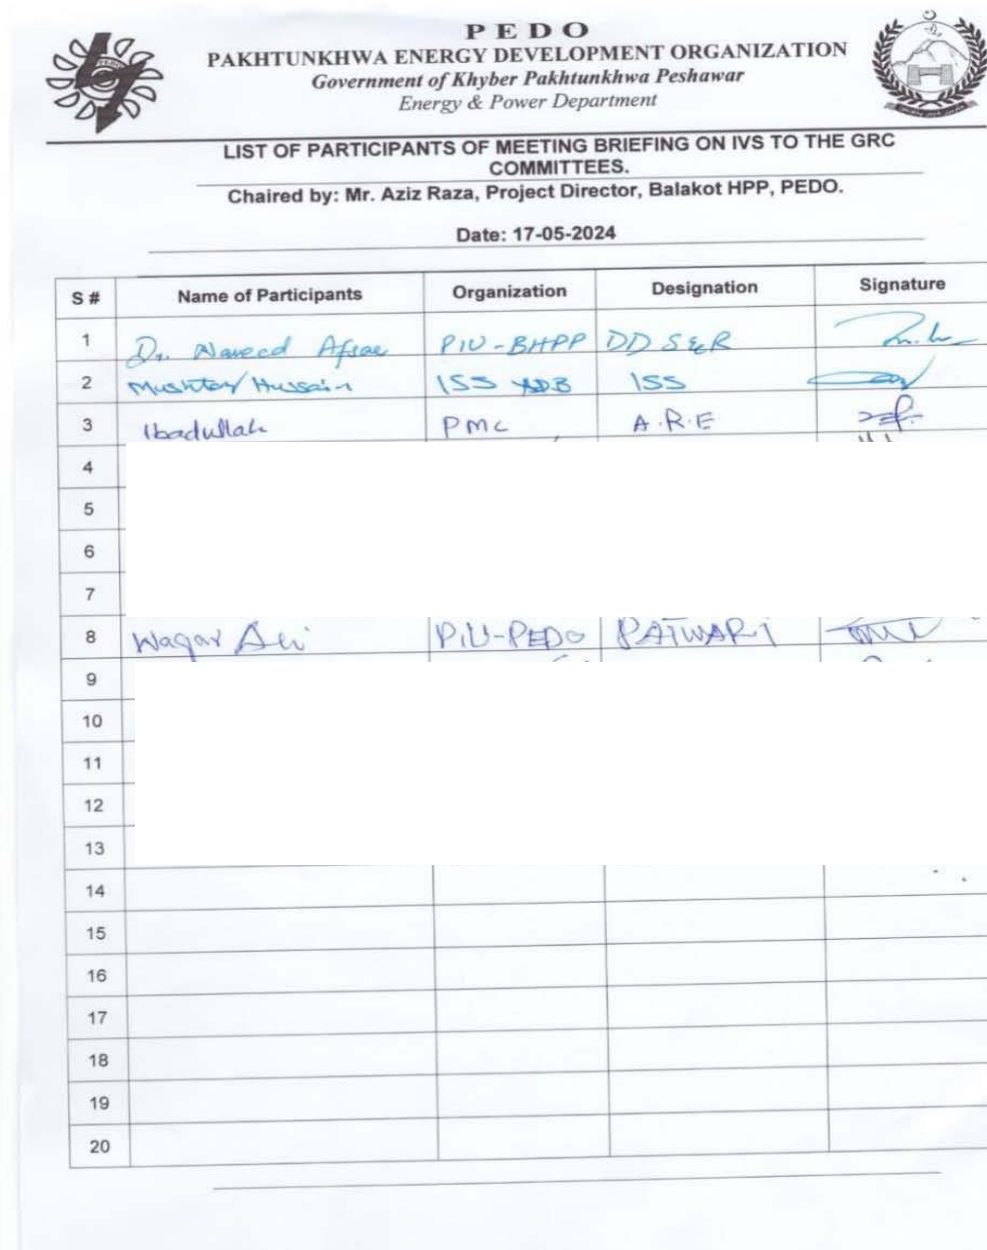 PEDO
PAKHTUNKHWA ENERGY DEVELOPMENT ORGANIZATION
Government of Khyber Pakhtunkhwa Peshawar
Energy & Power Department
LIST OF PARTICIPANTS OF MEETING BRIEFING ON IVS TO THE GRC
COMMITTEES.
Chaired by: Mr. Aziz Raza, Project Director, Balakot HPP, PEDO.
Date: 17-05-2024
S # Name of Participants Organization Designation Signature
1 Dr. Naveed PIU-BHPP DD S&R
2 Hussain ISS ADB ISS
3 Ibadullah PMC A.R.E
4
5
6
7
8 Waqar Ali PIU-PEDO PATWARI
9
10
11
12
13
14
15
16
17
18
19
20